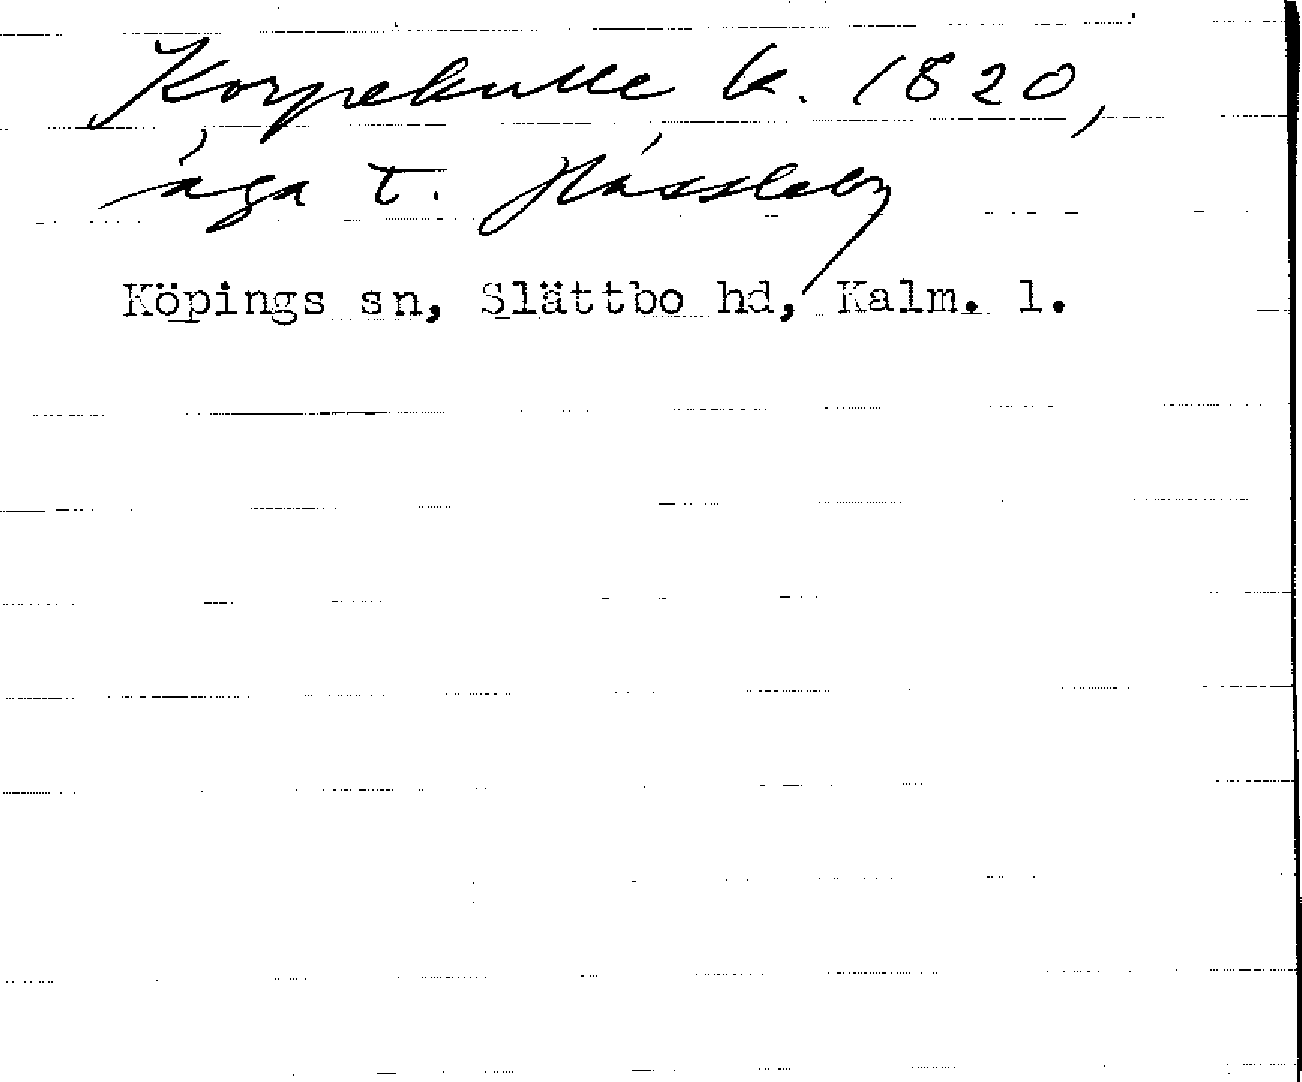 Korpekulle k. 1820,
äga t. Hässleby
Köpings sn, Slättbo hd, Kalm. l.